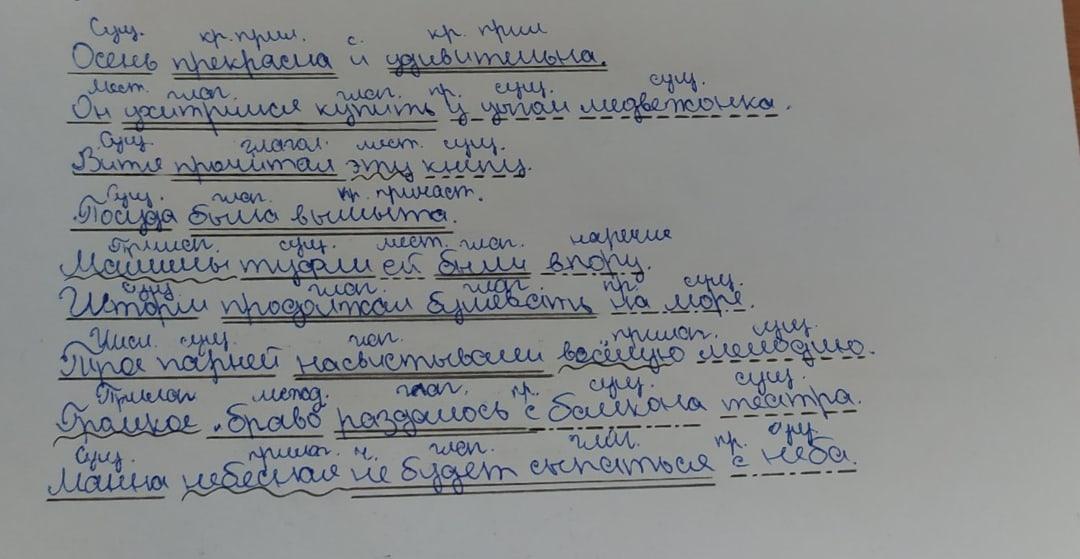 Сущ. кр. прил. с. кр. прил
Осень прекрасна и удивительна.
Мест. глаг. глаг. пр. сущ. сущ.
Он ухитрился купить у цыган медвежонка.
Сущ. глагол. мест. сущ.
Витя прочитал эту книгу.
Сущ. глаг. кр. причаст.
Посуда была вымыта.
Прилаг. сущ. мест. глаг. наречие
Мамины туфли ей были впору.
Сущ. глаг. глаг. пр. сущ.
Шторм продолжал бушевать на море.
Числ. сущ. глаг. прилаг. сущ.
Трое парней насвистывали весёлую мелодию.
Прилаг межд. глаг. пр. сущ. сущ.
Громкое "браво" раздалось с балкона театра.
Сущ. прилаг. ч. глаг. глаг. пр. сущ.
Манна небесная не будет сыпаться с неба.